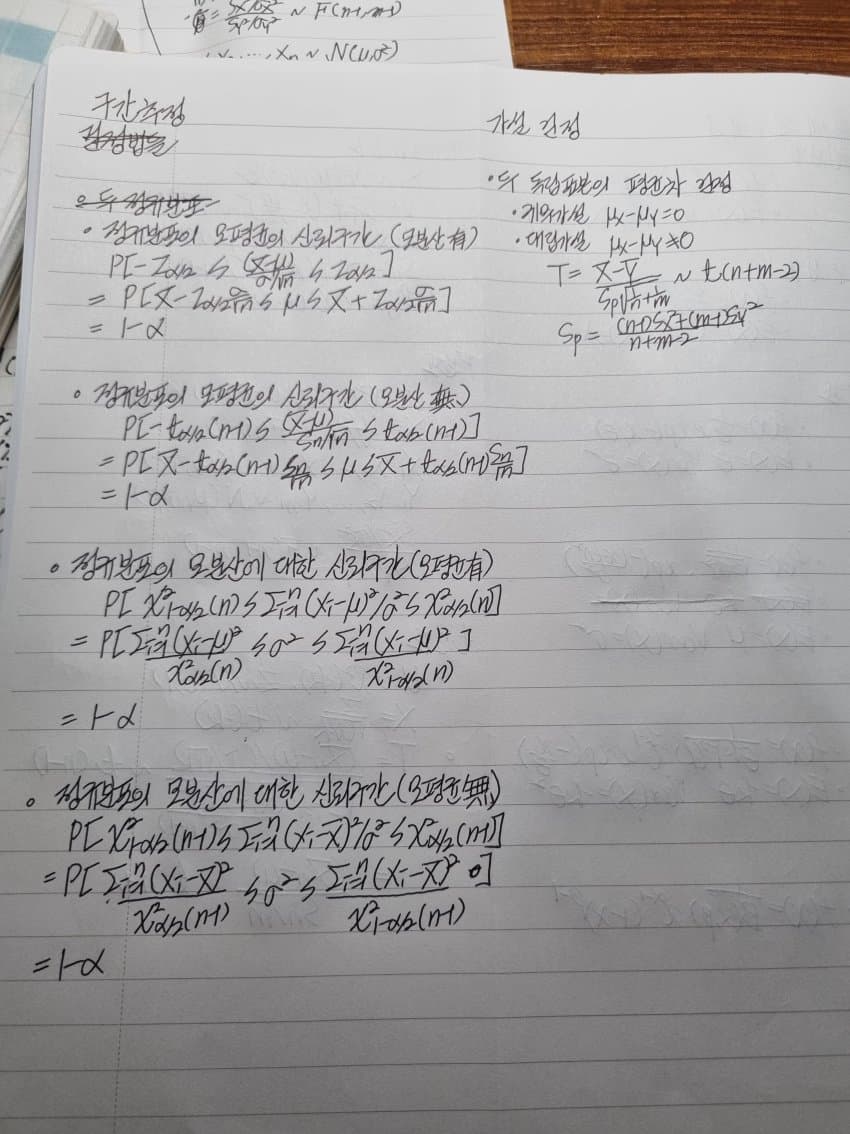 = Sx²/σx² / Sy²/σy² ~ F(n-1, m-1)
X₁, ..., Xn ~ N(μ,σ²)
구간추정
· 정규분포의 모평균의 신뢰구간 (모분산 有)
P[-Zα/2 ≤ (X̄-μ)/(σ/√n) ≤ Zα/2]
= P[X̄-Zα/2 σ/√n ≤ μ ≤ X̄+Zα/2 σ/√n]
= 1-α
· 정규분포의 모평균의 신뢰구간 (모분산 無)
P[-tα/2(n-1) ≤ (X̄-μ)/(Sn/√n) ≤ tα/2(n-1)]
= P[X̄-tα/2(n-1) Sn/√n ≤ μ ≤ X̄+tα/2(n-1) Sn/√n]
= 1-α
· 정규분포의 모분산에 대한 신뢰구간 (모평균 有)
P[χ²1-α/2(n) ≤ Σi=1ⁿ(Xi-μ)²/σ² ≤ χ²α/2(n)]
= P[Σi=1ⁿ(Xi-μ)²/χ²α/2(n) ≤ σ² ≤ Σi=1ⁿ(Xi-μ)²/χ²1-α/2(n)]
= 1-α
· 정규분포의 모분산에 대한 신뢰구간 (모평균 無)
P[χ²1-α/2(n-1) ≤ Σi=1ⁿ(Xi-X̄)²/σ² ≤ χ²α/2(n-1)]
= P[Σi=1ⁿ(Xi-X̄)²/χ²α/2(n-1) ≤ σ² ≤ Σi=1ⁿ(Xi-X̄)²/χ²1-α/2(n-1)]
= 1-α
가설 검정
· 두 독립표본의 평균차 검정
· 귀무가설 μx-μy=0
· 대립가설 μx-μy≠0
T = (X̄-Ȳ)/(Sp√(1/n+1/m)) ~ t(n+m-2)
Sp = ((n-1)Sx²+(m-1)Sy²)/(n+m-2)